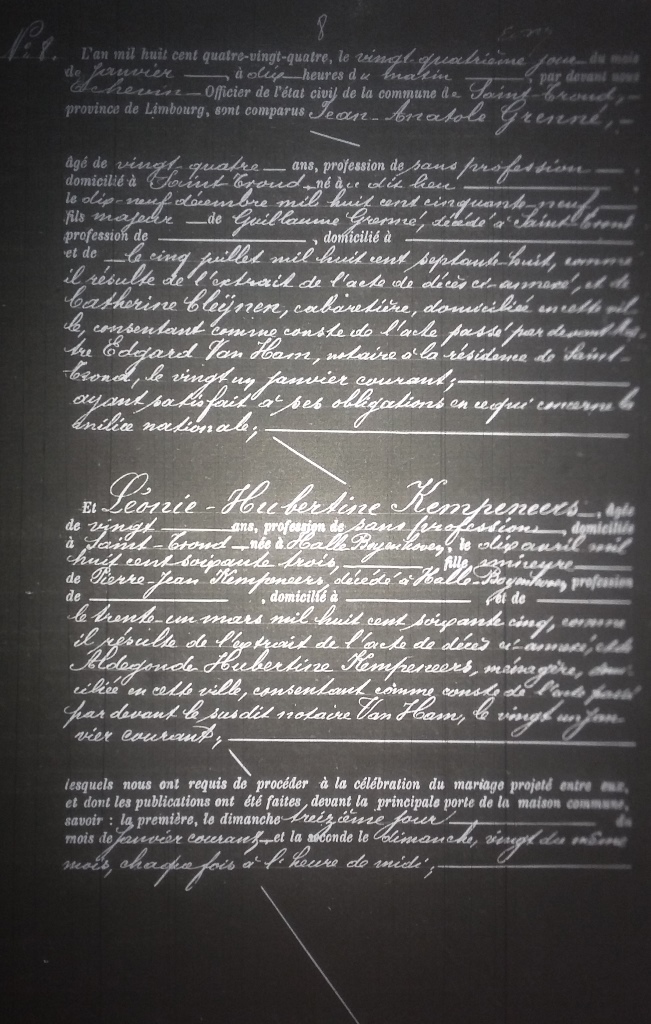 8
N° 8.
L'an mil huit cent quatre-vingt-quatre, le vingt-quatrième jour du mois
de Janvier, à dix heures du matin, par devant nous
Echevin Officier de l'état civil de la commune de Saint-Trond,
province de Limbourg, sont comparus Jean-Anatole Grenné,
âgé de vingt-quatre ans, profession de sans profession
domicilié à Saint-Trond né à u dit lieu
le dix-neuf décembre mil huit cent cinquante-neuf
fils majeur de Guillaume Grenné, décédé à Saint-Trond
profession de , domicilié à
et de le cinq juillet mil huit cent septante-huit, comme
il résulte de l'extrait de l'acte de décès ci-annexé, et de
Catherine Cleÿnen, cabaretière, domiciliée en cette vil-
le, consentant comme conste de l'acte passé par devant Maî-
tre Edgard Van Ham, notaire à la résidence de Saint-
Trond, le vingt un janvier courant;
ayant satisfait à ses obligations en ce qui concerne la
milice nationale;
Et Léonie-Hubertine Kempeneers, âgée
de vingt ans, profession de sans profession, domiciliée
à Saint-Trond née à Halle Boyenhoven, le dix avril mil
huit cent soixante trois, fille mineure
de Pierre-Jean Kempeneers, décédé à Halle-Boyenhoven, profession
de , domicilié à , et de
le trente-un mars mil huit cent soixante cinq, comme
il résulte de l'extrait de l'acte de décès ci-annexé, et de
Aldegonde Hubertine Kempeneers, ménagère, domi-
ciliée en cette ville, consentant comme conste de l'acte passé
par devant le susdit notaire Van Ham, le vingt un jan-
vier courant;
lesquels nous ont requis de procéder à la célébration du mariage projeté entre eux,
et dont les publications ont été faites devant la principale porte de la maison commune,
savoir : la première, le dimanche treizième jour du
mois de janvier courant et la seconde le dimanche, vingt du même
mois, chaque fois à l'heure de midi;